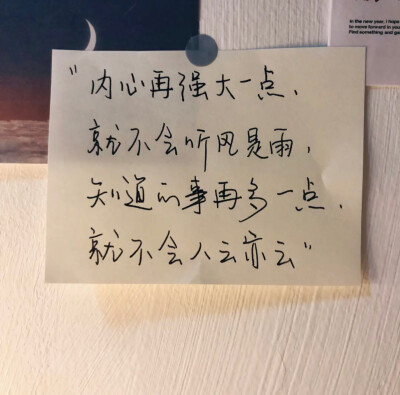 In the new year, I hope
to move forward in your
Find something and
"内心再强大一点,
就不会听风是雨,
知道的事再多一点,
就不会人云亦云"